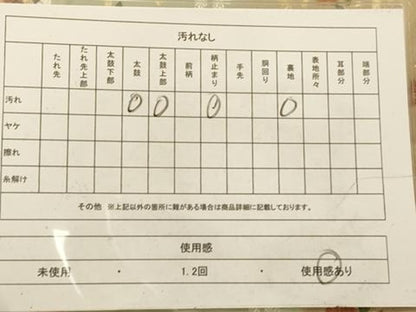 汚れなし
たれ先 たれ先上部 太鼓下部 太鼓 太鼓上部 前柄 柄止まり 手先 胴回り 裏地 表地所々 耳部分 端部分
汚れ 0 0 0 0
ヤケ
擦れ
糸解け
その他 ※上記以外の箇所に難がある場合は商品詳細に記載しております。
使用感
未使用 ・ 1.2回 ・ 使用感あり